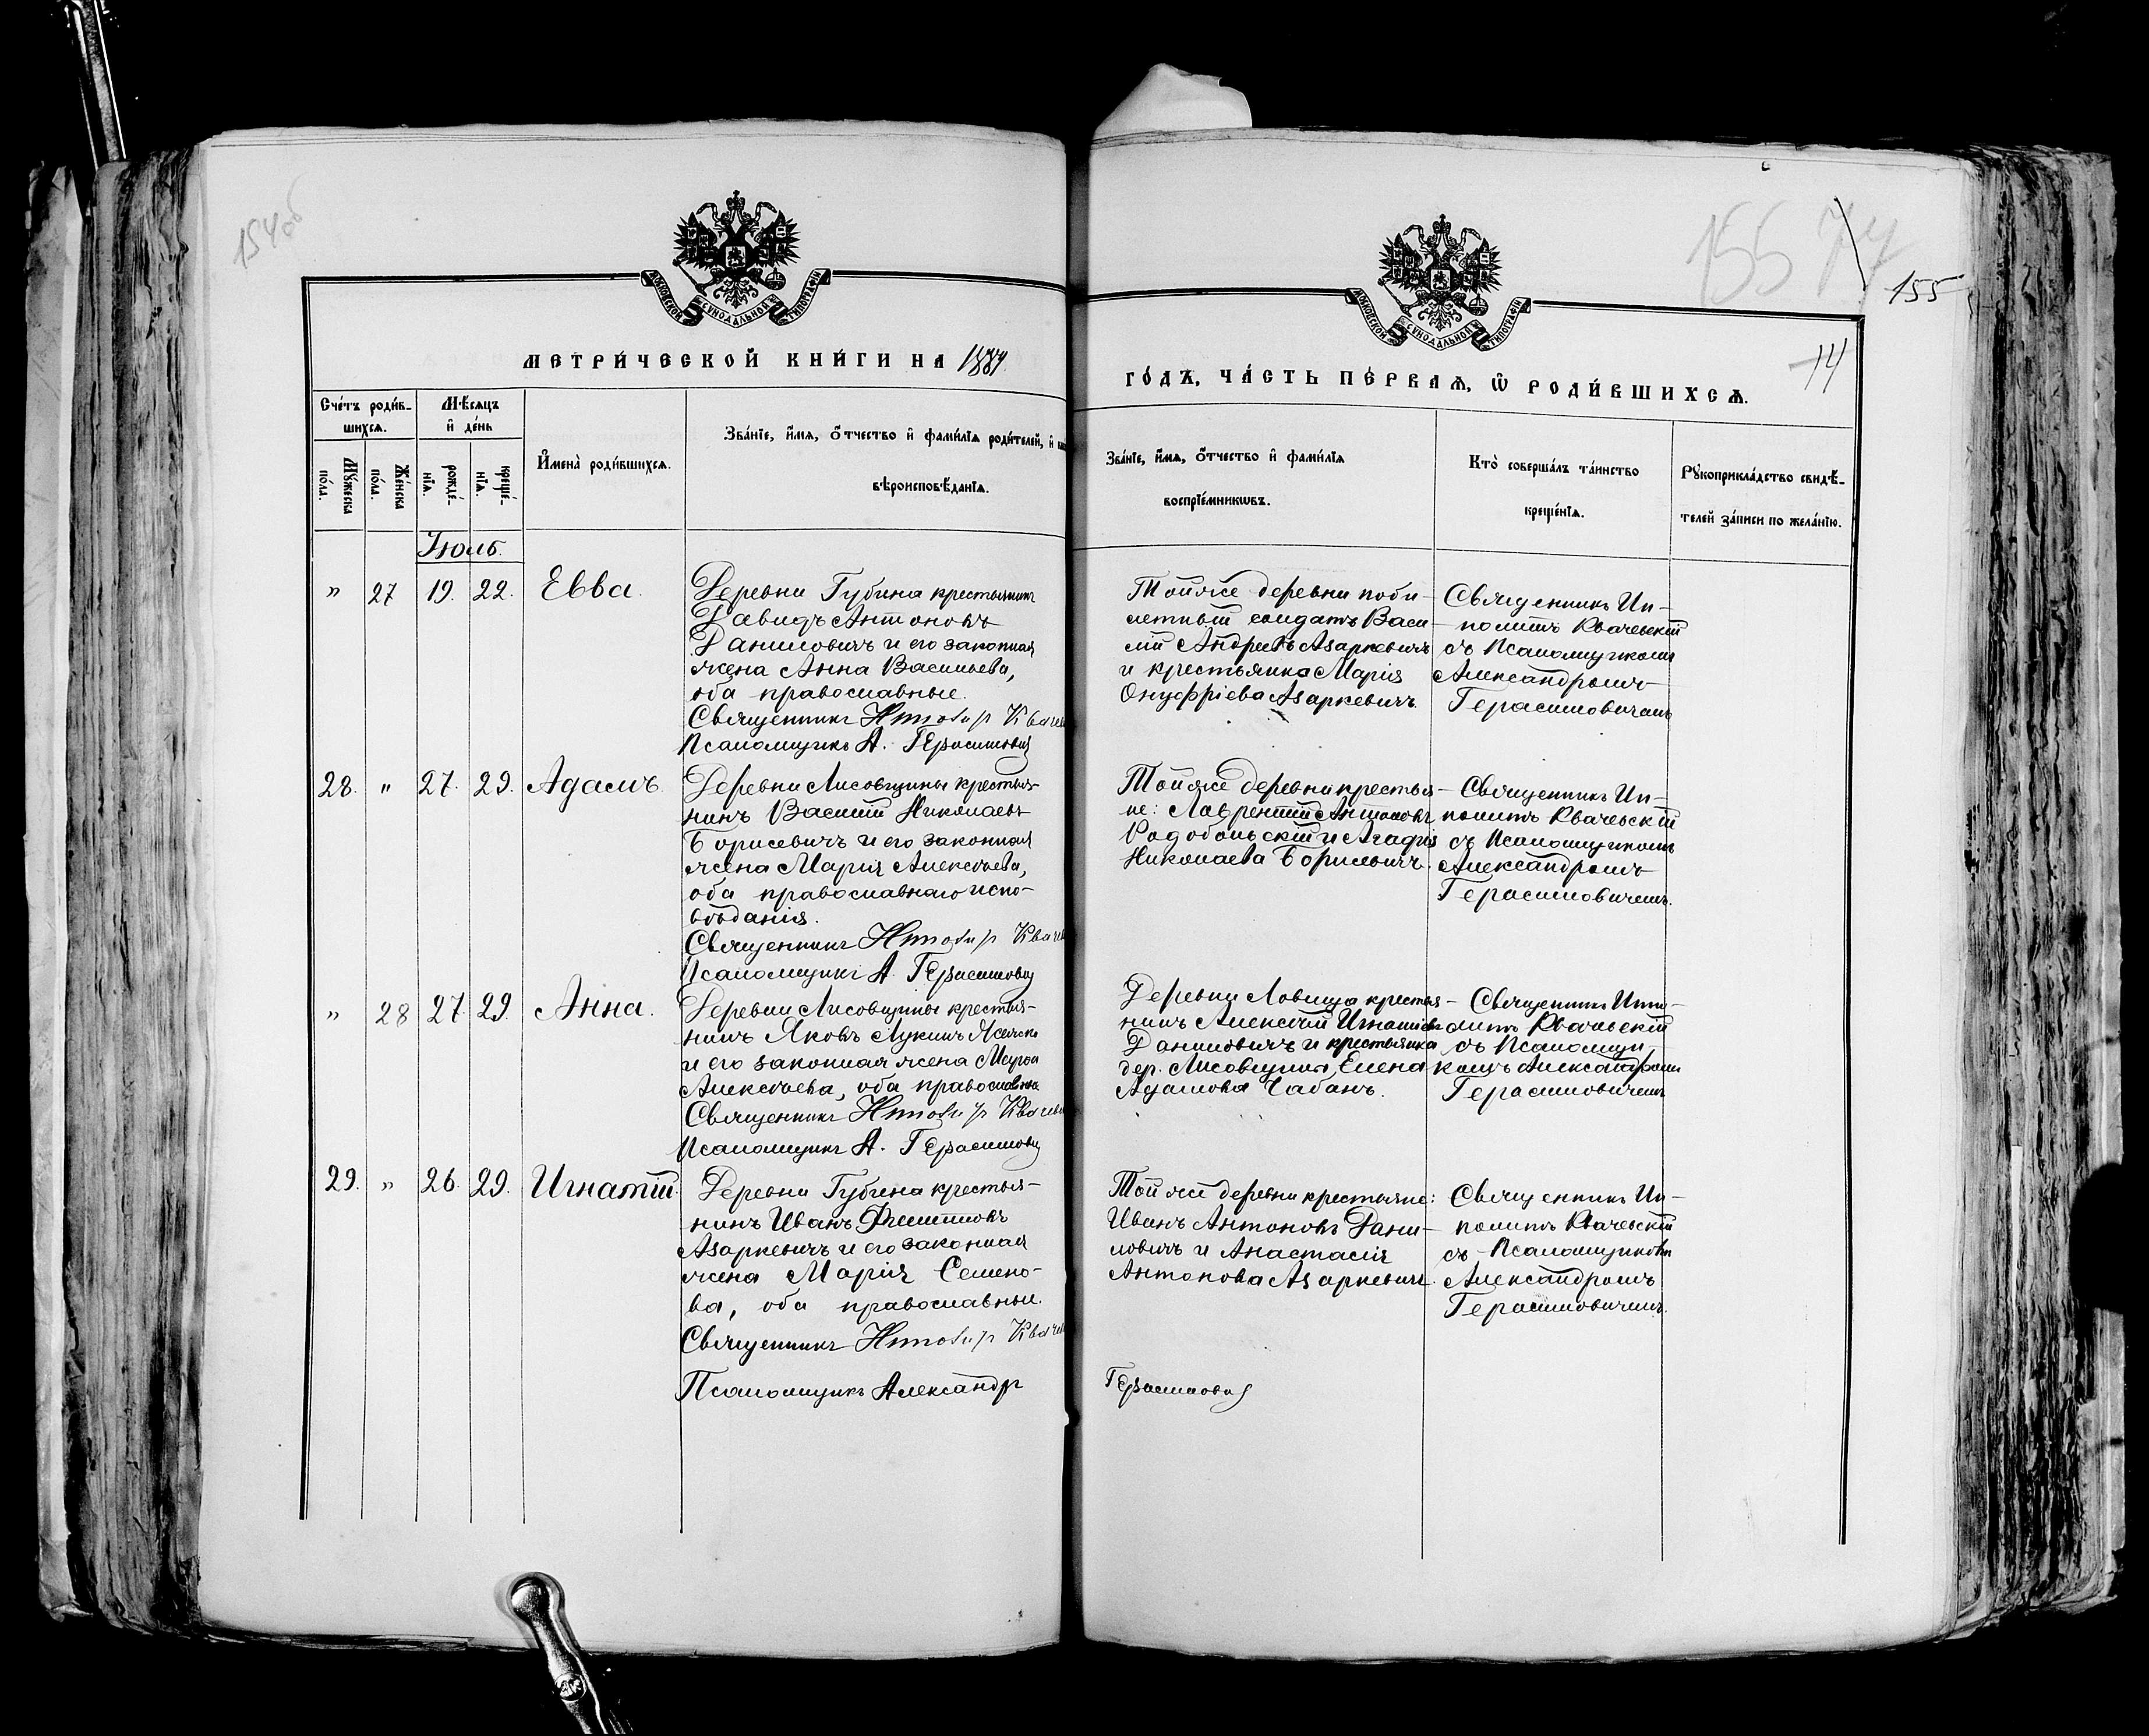 154об
МОСКОВСКОЙ СѴНОДАЛЬНОЙ ТИПОГРАФІИ
МЕТРИ́ЧЕСКОЙ КНИ́ГИ НА 1884
Сче́тъ роди́в-
шихсѧ.
Мѣ́сѧцъ
и҆ де́нь
Мꙋ́жеска
по́ла.
Же́нска
по́ла.
рожде́-
нїѧ.
креще́-
нїѧ.
И҆мена̀ роди́вшихсѧ.
Зва́нїе, и҆́мѧ, ѻ҆́тчество и҆ фами́лїѧ роди́телей, и҆
вѣроисповѣ́данїѧ.
Іюль.
" 27 19. 22. Евва.
Деревни Губина крестьянинъ
Давидъ Антоновъ
Даниловичъ и его законная
жена Анна Васильева,
оба православные.
Священникъ Ипполитъ
Псаломщикъ А. Герасимовичъ
28. " 27. 29. Адамъ.
Деревни Лисовщины крестья-
нинъ Василій Николаевъ
Борисевичъ и его законная
жена Марія Алексѣева,
оба православнаго испо-
вѣданія.
Священникъ Ипполитъ
Псаломщикъ А. Герасимовичъ
" 28 27. 29. Анна.
Деревни Лисовщины крестья-
нинъ Яковъ Лукинъ
и его законная жена
Алексѣева, оба православные
Священникъ Ипполитъ
Псаломщикъ А. Герасимовичъ
29. " 26. 29. Игнатій.
Деревни Губина крестья-
нинъ Иванъ Филипповъ
Азаркевичъ и его законная
жена Марія Семено-
ва, оба православные.
Священникъ Ипполитъ
Псаломщикъ Александръ
155 74
155
14
МОСКОВСКОЙ СѴНОДАЛЬНОЙ ТИПОГРАФІИ
ГО́ДЪ, ЧА́СТЬ ПЕ́РВАѦ, Ѽ РОДИ́ВШИХСѦ.
Зва́нїе, и҆́мѧ, ѻ҆́тчество и҆ фами́лїѧ
воспрїе́мникѡвъ.
Кто̀ соверша́лъ та́инство
креще́нїѧ.
Рꙋкоприкла́дство свидѣ́-
телей за́писи по жела́нїю.
Тойже деревни поби-
летный солдатъ Васи-
лій Андреевъ Азаркевичъ
и крестьянка Марія
Онуфріева Азаркевичъ.
Священникъ Ип-
политъ Квачевскій
съ Псаломщикомъ
Александромъ
Герасимовичемъ
Тойже деревни крестья-
не: Лаврентій Антоновъ
Радобольскій и Агафія
Николаева Борисевичъ.
Священникъ Ип-
политъ Квачевскій
съ Псаломщикомъ
Александромъ
Герасимовичемъ.
Деревни Ловища крестья-
нинъ Алексѣй Игнатіевъ
Даниловичъ и крестьянка
дер. Лисовщины Елена
Адамова Чабанъ.
Священникъ Иппо-
литъ Квачевскій
съ Псаломщи-
комъ Александромъ
Герасимовичемъ
Той же деревни крестьяне:
Иванъ Антоновъ Дани-
ловичъ и Анастасія
Антонова Азаркевичъ.
Священникъ Ип-
политъ Квачевскій
съ Псаломщикомъ
Александромъ
Герасимовичемъ.
Герасимовичъ